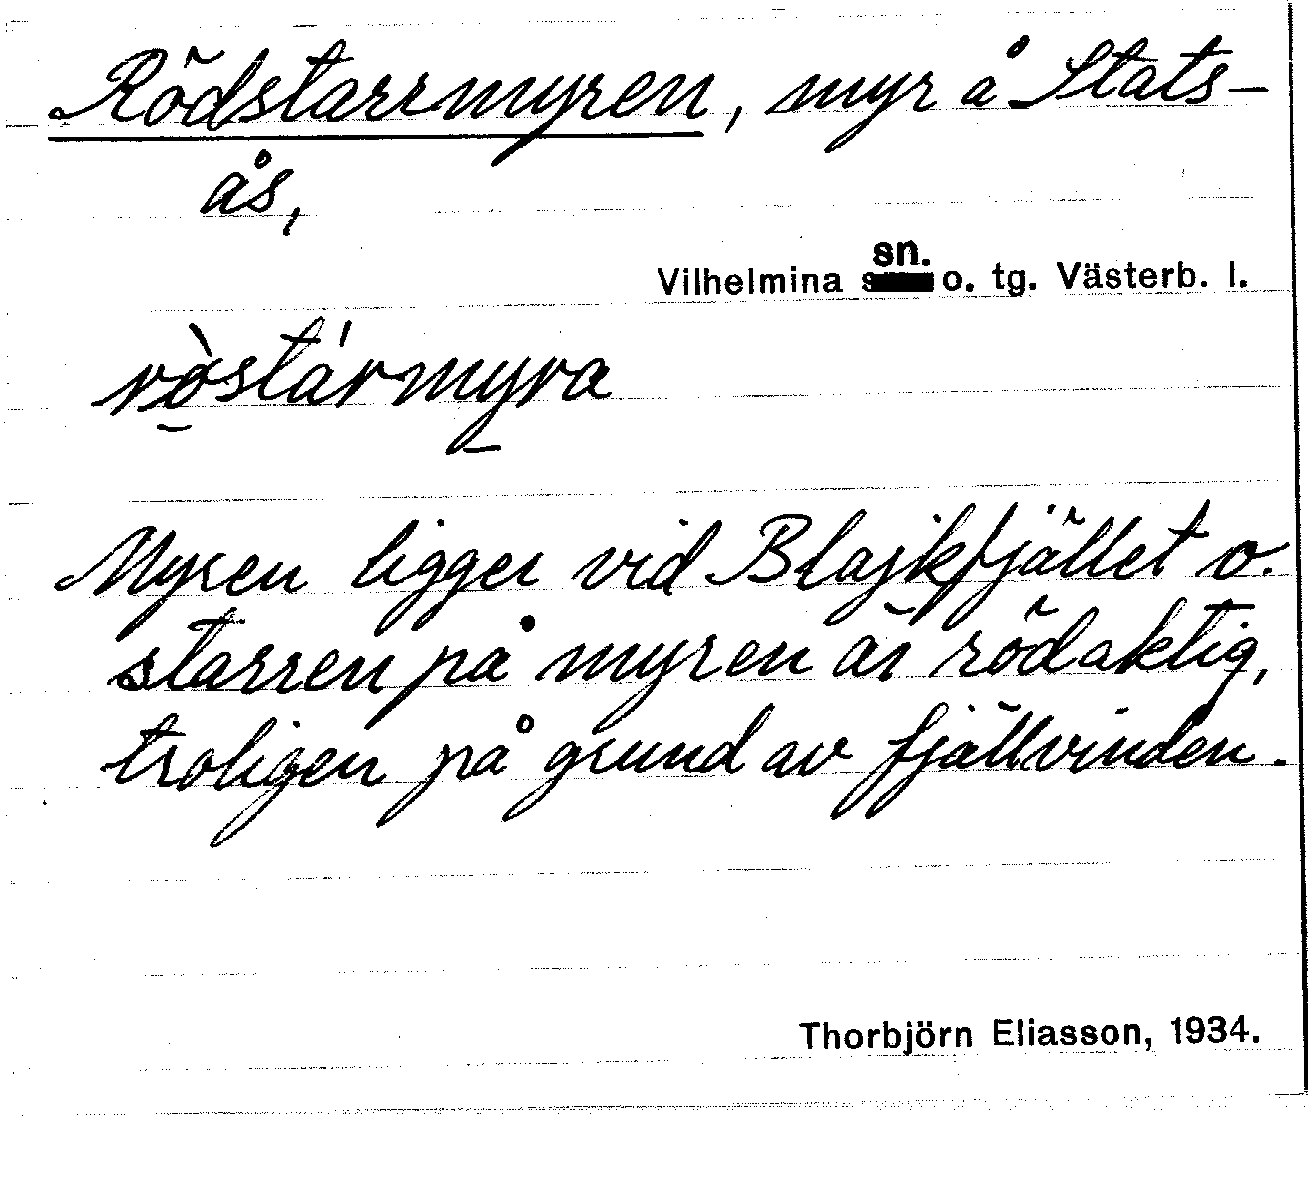 Rödstarrmyren, myr å Stats-
ås,
Vilhelmina sn. o. tg. Västerb. l.
rö̀stármyra
Myren ligger vid Blajkfjället o.
starren på myren är rödaktig,
troligen på grund av fjällvinden.
Thorbjörn Eliasson, 1934.